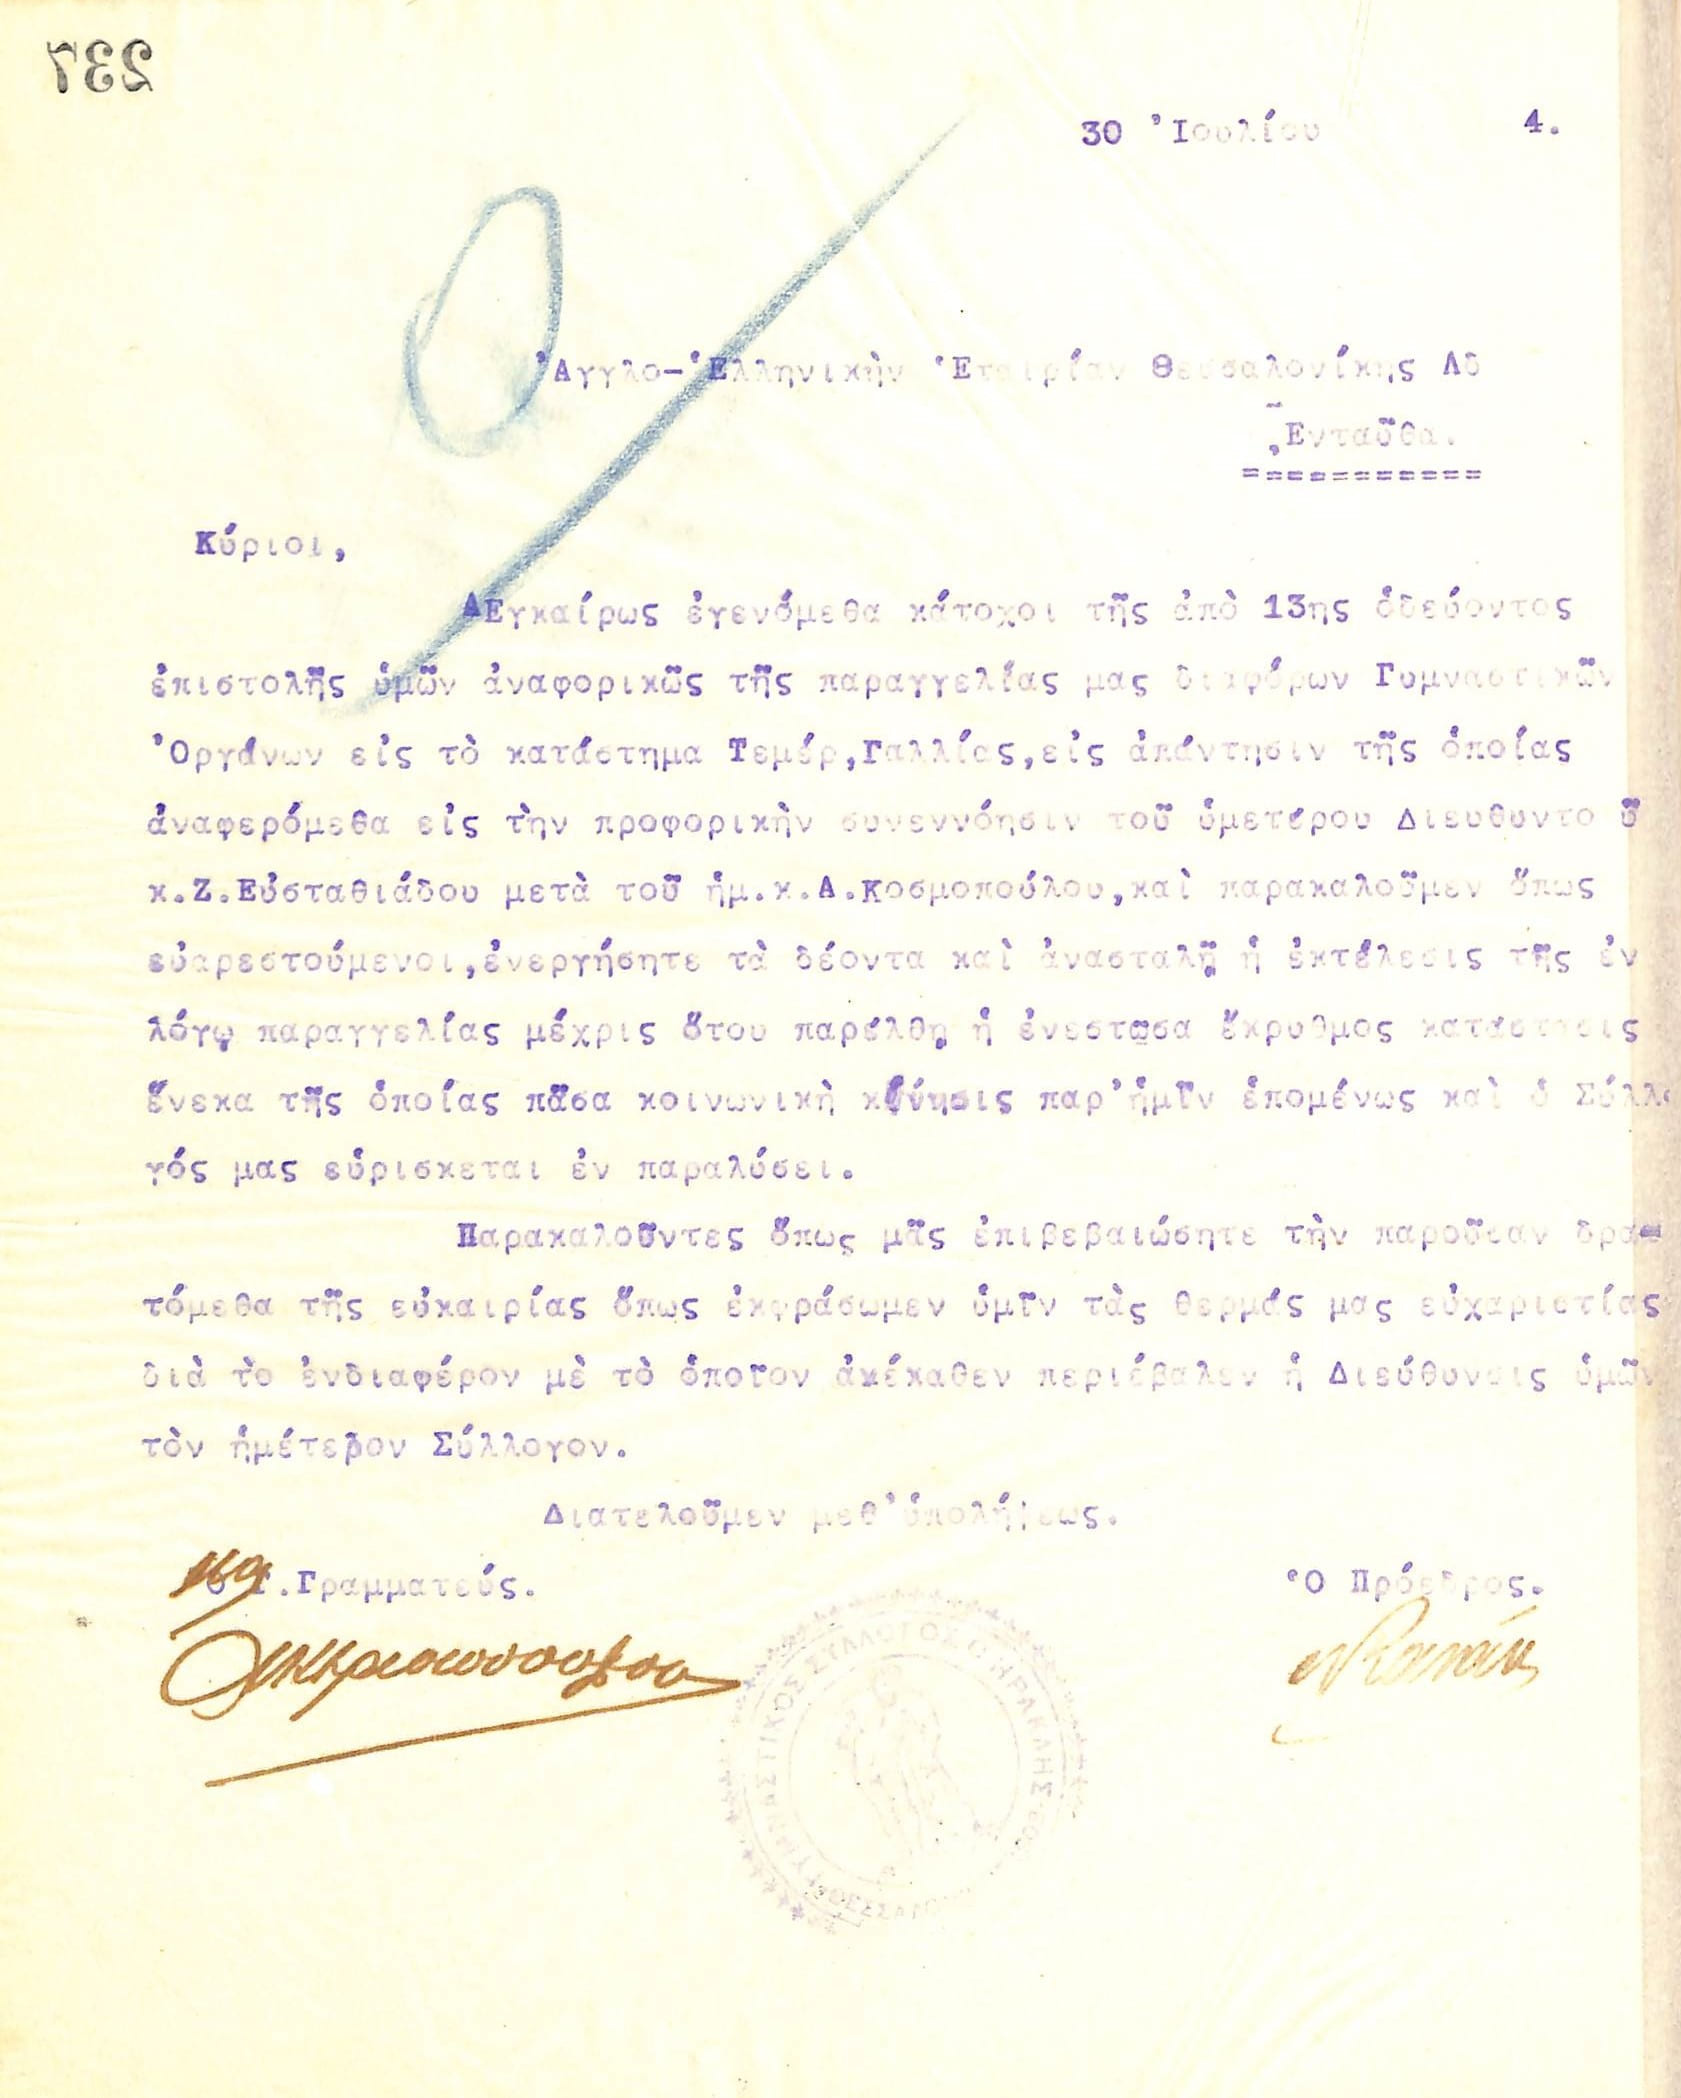 237
30 Ἰουλίου 4.
Ἀγγλο-Ἑλληνικὴν Ἑταιρίαν Θεσσαλονίκης Λδ
Ἐνταῦθα.
===========
Κύριοι,
Ἐγκαίρως ἐγενόμεθα κάτοχοι τῆς ἀπὸ 13ης ὁδεύοντος
ἐπιστολῆς ὑμῶν ἀναφορικῶς τῆς παραγγελίας μας διαφόρων Γυμναστικῶν
Ὀργάνων εἰς τὸ κατάστημα Τεμέρ,Γαλλίας,εἰς ἀπάντησιν τῆς ὁποίας
ἀναφερόμεθα εἰς τὴν προφορικὴν συνεννόησιν τοῦ ὑμετέρου Διευθυντο ῦ
κ.Ζ.Εὐσταθιάδου μετὰ τοῦ ἡμ.κ.Α.Κοσμοπούλου,καὶ παρακαλοῦμεν ὅπως
εὐαρεστούμενοι,ἐνεργήσητε τὰ δέοντα καὶ ἀνασταλῇ ἡ ἐκτέλεσις τῆς ἐν
λόγῳ παραγγελίας μέχρις ὅτου παρέλθῃ ἡ ἐνεστῶσα ἔκρυθμος κατάστασις
ἕνεκα τῆς ὁποίας πᾶσα κοινωνικὴ κίνησις παρ'ἡμῖν ἑπομένως καὶ ὁ Σύλλο
γός μας εὑρίσκεται ἐν παραλύσει.
Παρακαλοῦντες ὅπως μᾶς ἐπιβεβαιώσητε τὴν παροῦσαν δρα-
τόμεθα τῆς εὐκαιρίας ὅπως ἐκφράσωμεν ὑμῖν τὰς θερμάς μας εὐχαριστίας
διὰ τὸ ἐνδιαφέρον μὲ τὸ ὁποῖον ἀκέκαθεν περιέβαλεν ἡ Διεύθυνσις ὑμῶν
τὸν ἡμέτερον Σύλλογον.
Διατελοῦμεν μεθ'ὑπολήψεως.
Ὁ Γ.Γραμματεύς. Ὁ Πρόεδρος.
ΓΥΜΝΑΣΤΙΚΟΣ ΣΥΛΛΟΓΟΣ Ο ΗΡΑΚΛΗΣ